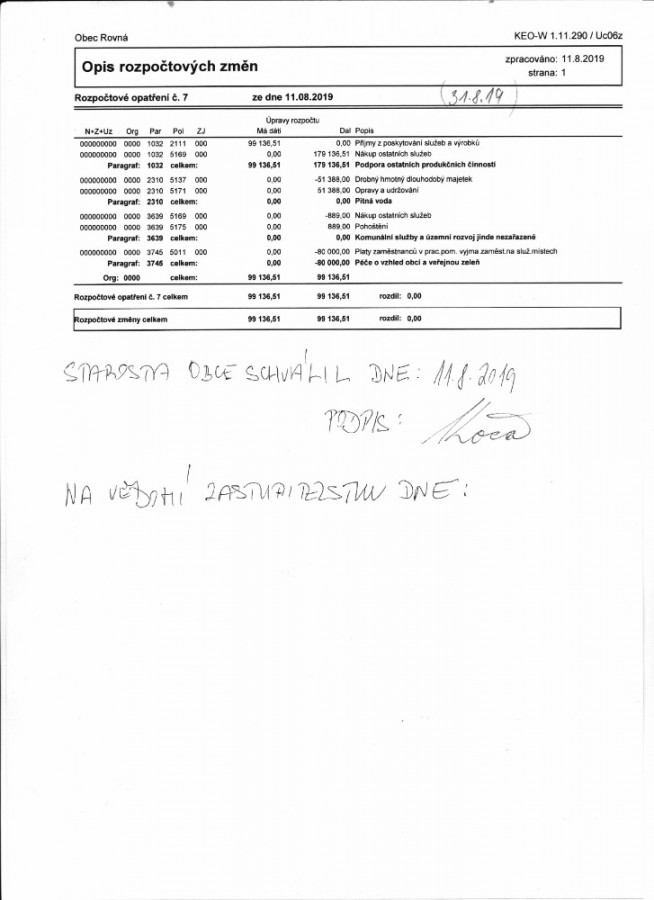 Obec Rovná KEO-W 1.11.290 / Uc06z
Opis rozpočtových změn zpracováno: 11.8.2019
strana: 1
Rozpočtové opatření č. 7 ze dne 11.08.2019 (31.8.19)
Úpravy rozpočtu
N+Z+Uz Org Par Pol ZJ Má dáti Dal Popis
000000000 0000 1032 2111 000 99 136,51 0,00 Příjmy z poskytování služeb a výrobků
000000000 0000 1032 5169 000 0,00 179 136,51 Nákup ostatních služeb
Paragraf: 1032 celkem: 99 136,51 179 136,51 Podpora ostatních produkčních činností
000000000 0000 2310 5137 000 0,00 -51 388,00 Drobný hmotný dlouhodobý majetek
000000000 0000 2310 5171 000 0,00 51 388,00 Opravy a udržování
Paragraf: 2310 celkem: 0,00 0,00 Pitná voda
000000000 0000 3639 5169 000 0,00 -889,00 Nákup ostatních služeb
000000000 0000 3639 5175 000 0,00 889,00 Pohoštění
Paragraf: 3639 celkem: 0,00 0,00 Komunální služby a územní rozvoj jinde nezařazené
000000000 0000 3745 5011 000 0,00 -80 000,00 Platy zaměstnanců v prac.pom. vyjma zaměst.na služ.místech
Paragraf: 3745 celkem: 0,00 -80 000,00 Péče o vzhled obcí a veřejnou zeleň
Org: 0000 celkem: 99 136,51 99 136,51
Rozpočtové opatření č. 7 celkem 99 136,51 99 136,51 rozdíl: 0,00
Rozpočtové změny celkem 99 136,51 99 136,51 rozdíl: 0,00
STAROSTA OBCE SCHVÁLIL DNE: 11.8.2019
PODPIS:
NA VĚDOMÍ ZASTUPITELSTVU DNE: